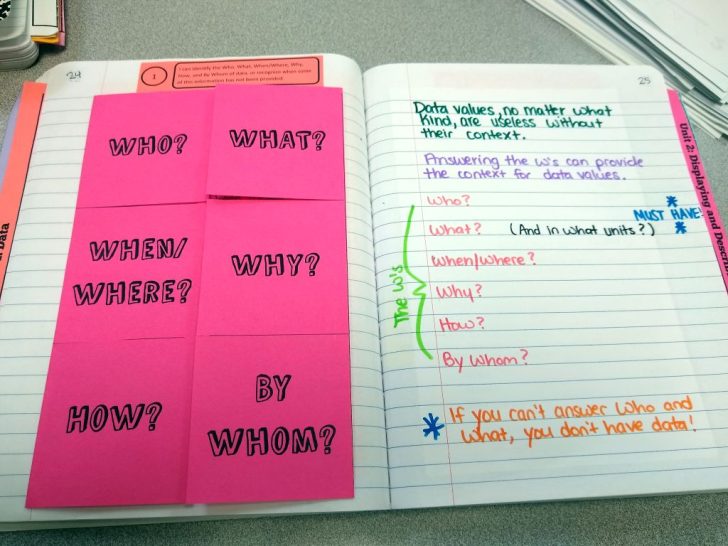 24
1
I can identify the Who, What, When/Where, Why,
How, and By Whom of data, or recognize when some
of this information has not been provided.
WHO?
WHAT?
WHEN/
WHERE?
WHY?
HOW?
BY
WHOM?
Data
25
Data values, no matter what
kind, are useless without
their context.
Answering the W's can provide
the context for data values.
The W's
Who?
What? (And in what units?)
* MUST HAVE! *
When/Where?
Why?
How?
By Whom?
* If you can't answer who and
what, you don't have data!
Unit 2: Displaying and